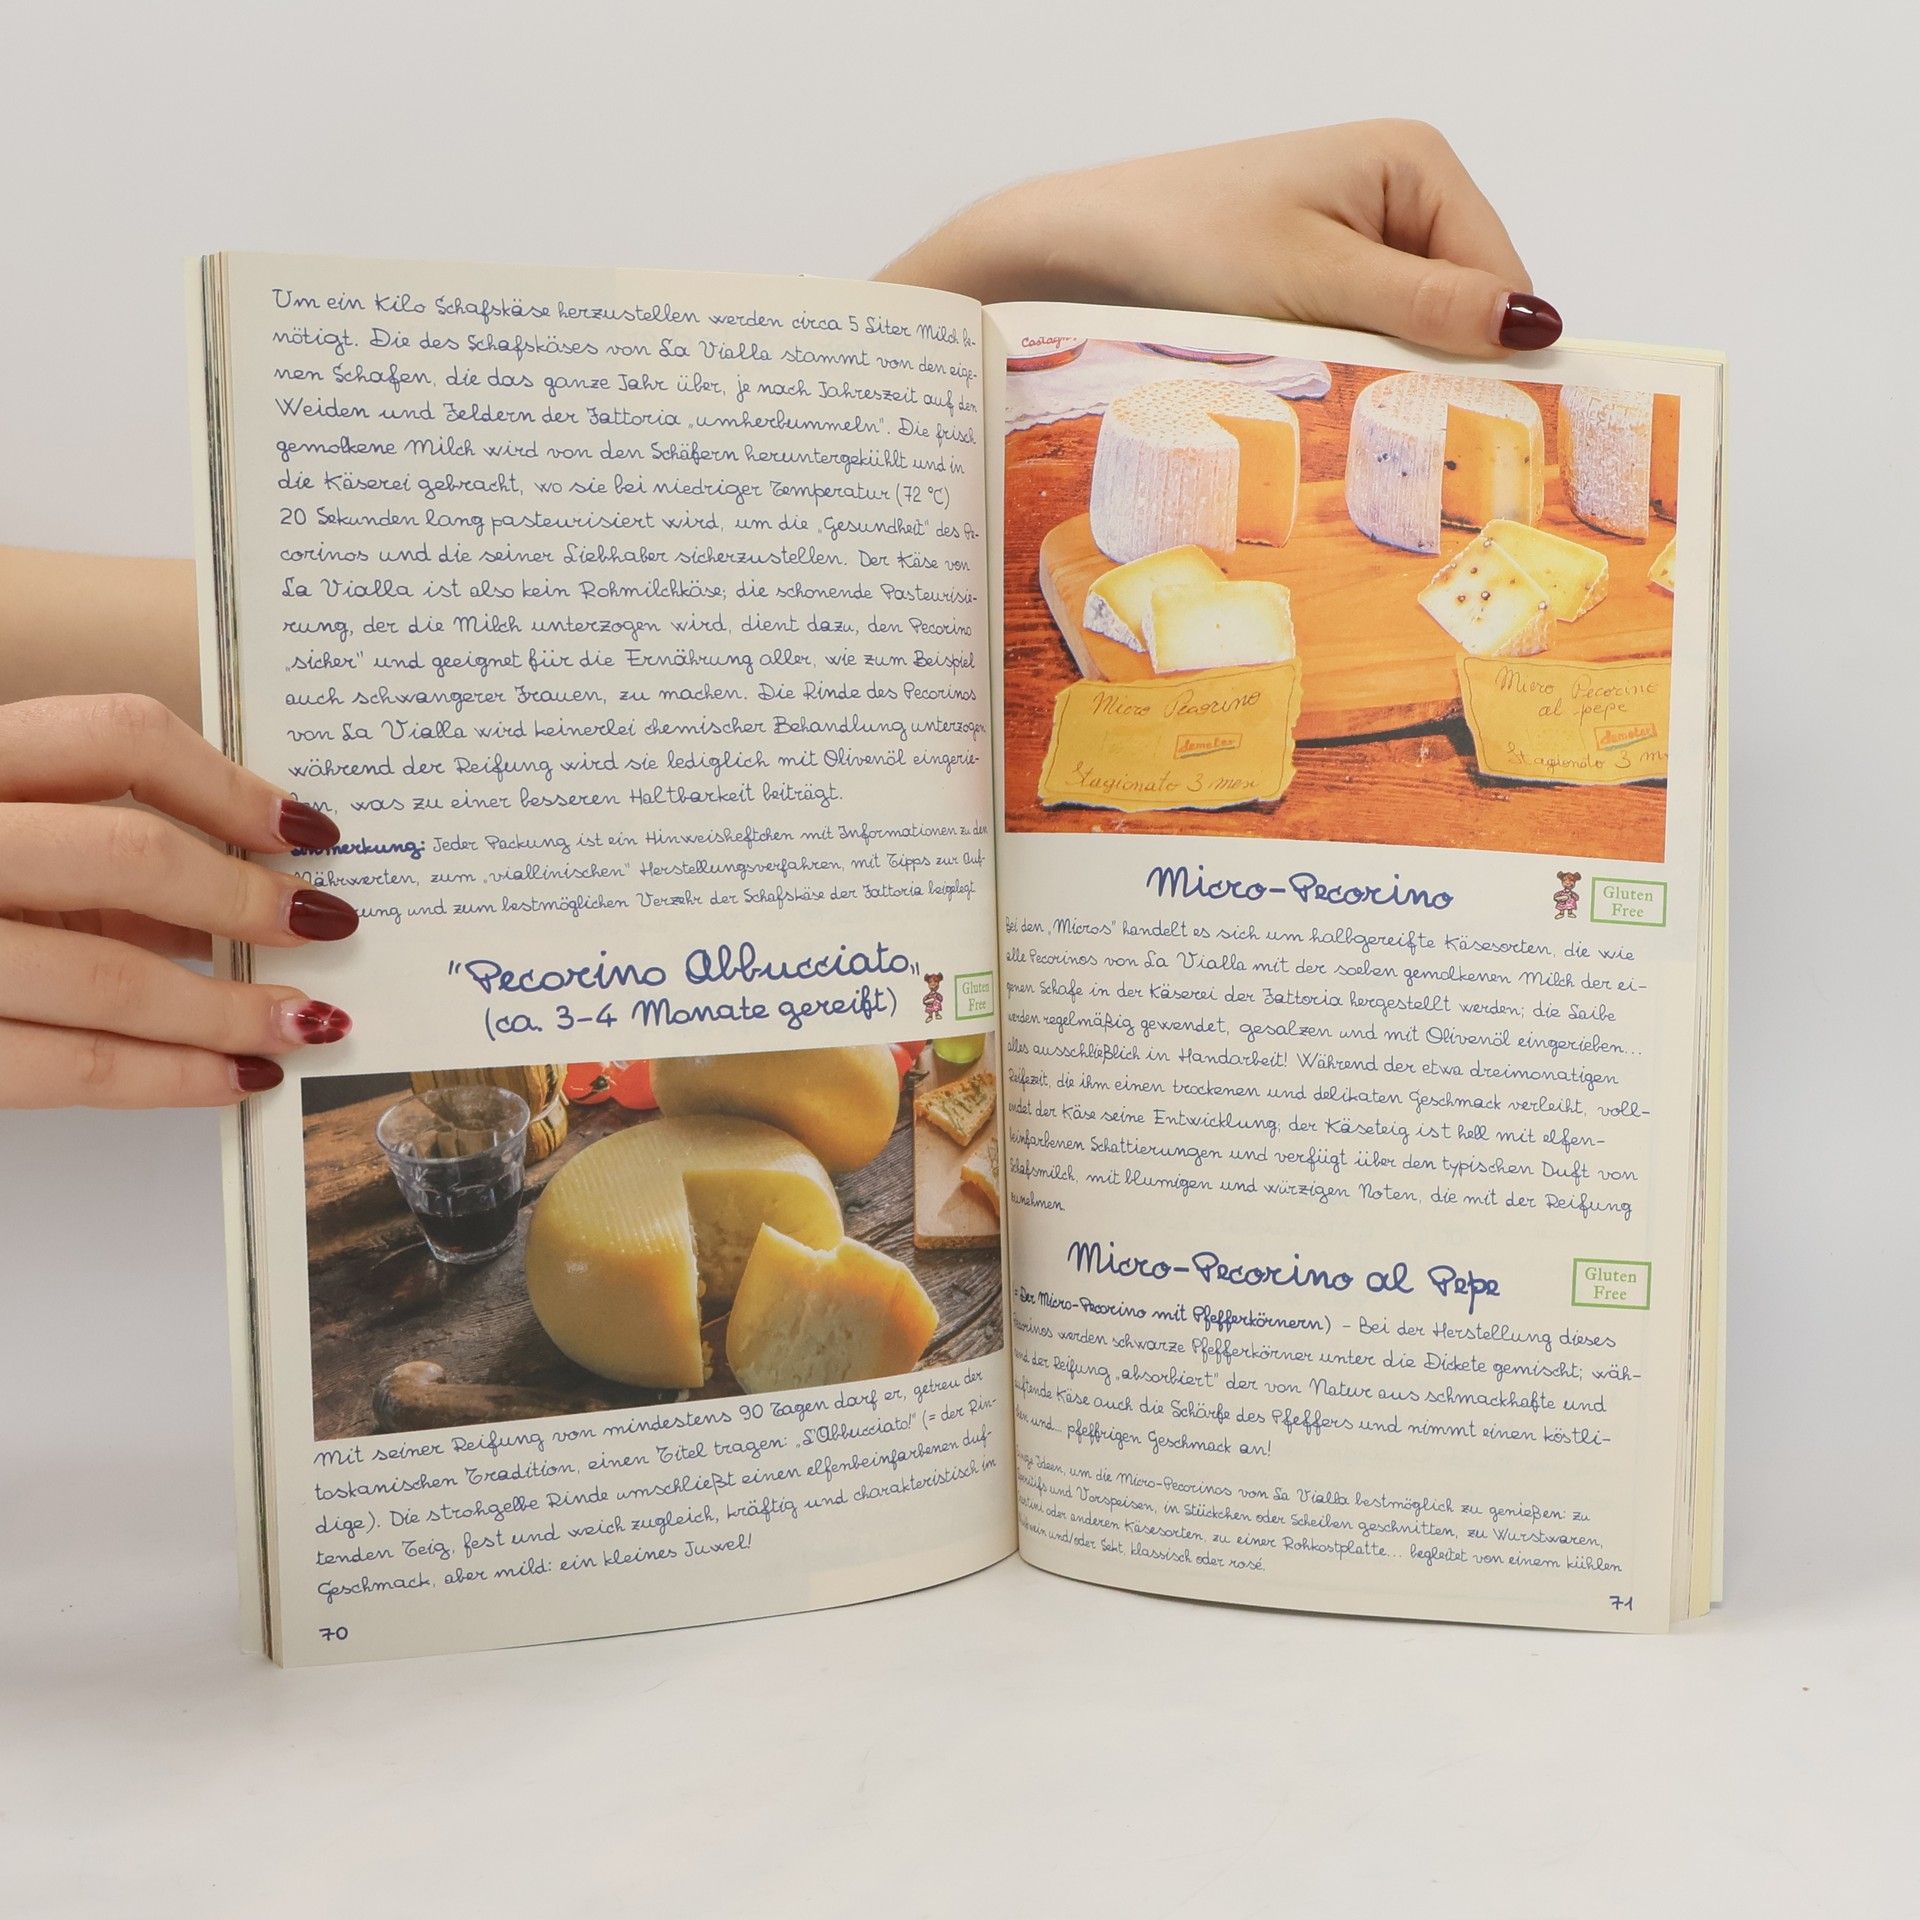 Um ein Kilo Schafskäse herzustellen werden circa 5 Liter Milch be-
nötigt. Die des Schafskäses von La Vialla stammt von den eige-
nen Schafen, die das ganze Jahr über, je nach Jahreszeit auf den
Weiden und Feldern der Fattoria „umherbummeln". Die frisch
gemolkene Milch wird von den Schäfern heruntergekühlt und in
die Käserei gebracht, wo sie bei niedriger Temperatur (72 °C)
20 Sekunden lang pasteurisiert wird, um die „Gesundheit" des Pe-
corinos und die seiner Liebhaber sicherzustellen. Der Käse von
La Vialla ist also kein Rohmilchkäse; die schonende Pasteurisie-
rung, der die Milch unterzogen wird, dient dazu, den Pecorino
„sicher" und geeignet für die Ernährung aller, wie zum Beispiel
auch schwangerer Frauen, zu machen. Die Rinde des Pecorinos
von La Vialla wird keinerlei chemischer Behandlung unterzogen
während der Reifung wird sie lediglich mit Olivenöl eingerie-
ben, was zu einer besseren Haltbarkeit beiträgt.
Anmerkung: Jeder Packung ist ein Hinweisheftchen mit Informationen zu den
Nährwerten, zum „viallinischen" Herstellungsverfahren, mit Tipps zur Auf-
und zum bestmöglichen Verzehr der Schafskäse der Fattoria beigelegt.
"Pecorino Abbucciato"
(ca. 3-4 Monate gereift)
Gluten
Free
Mit seiner Reifung von mindestens 90 Tagen darf er, getreu der
toskanischen Tradition, einen Titel tragen: „L'Abbucciato!" (= der Rin-
dige). Die strohgelbe Rinde umschließt einen elfenbeinfarbenen duf-
tenden Teig, fest und weich zugleich, kräftig und charakteristisch im
Geschmack, aber mild: ein kleines Juwel!
70
Micro Pecorino
demeter
Stagionato 3 mesi
Micro Pecorino
al pepe
demeter
Stagionato 3 m
Micro-Pecorino
Gluten
Free
Bei den „Micros" handelt es sich um halbgereifte Käsesorten, die wie
alle Pecorinos von La Vialla mit der soeben gemolkenen Milch der ei-
genen Schafe in der Käserei der Fattoria hergestellt werden; die Laibe
werden regelmäßig gewendet, gesalzen und mit Olivenöl eingerieben...
alles ausschließlich in Handarbeit! Während der etwa dreimonatigen
Reifezeit, die ihm einen trockenen und delikaten Geschmack verleiht, voll-
endet der Käse seine Entwicklung; der Käseteig ist hell mit elfen-
beinfarbenen Schattierungen und verfügt über den typischen Duft von
Schafsmilch, mit blumigen und würzigen Noten, die mit der Reifung
zunehmen.
Micro-Pecorino al Pepe
Gluten
Free
(= Der Micro-Pecorino mit Pfefferkörnern) - Bei der Herstellung dieses
Pecorinos werden schwarze Pfefferkörner unter die Dickete gemischt; wäh-
rend der Reifung „absorbiert" der von Natur aus schmackhafte und
duftende Käse auch die Schärfe des Pfeffers und nimmt einen köstli-
chen und... pfeffrigen Geschmack an!
Einige Ideen, um die Micro-Pecorinos von La Vialla bestmöglich zu genießen: zu
Aperitifs und Vorspeisen, in Stückchen oder Scheiben geschnitten, zu Wurstwaren,
Crostini oder anderen Käsesorten, zu einer Rohkostplatte... begleitet von einem kühlen
Weißwein und/oder Sekt, klassisch oder rosé.
71